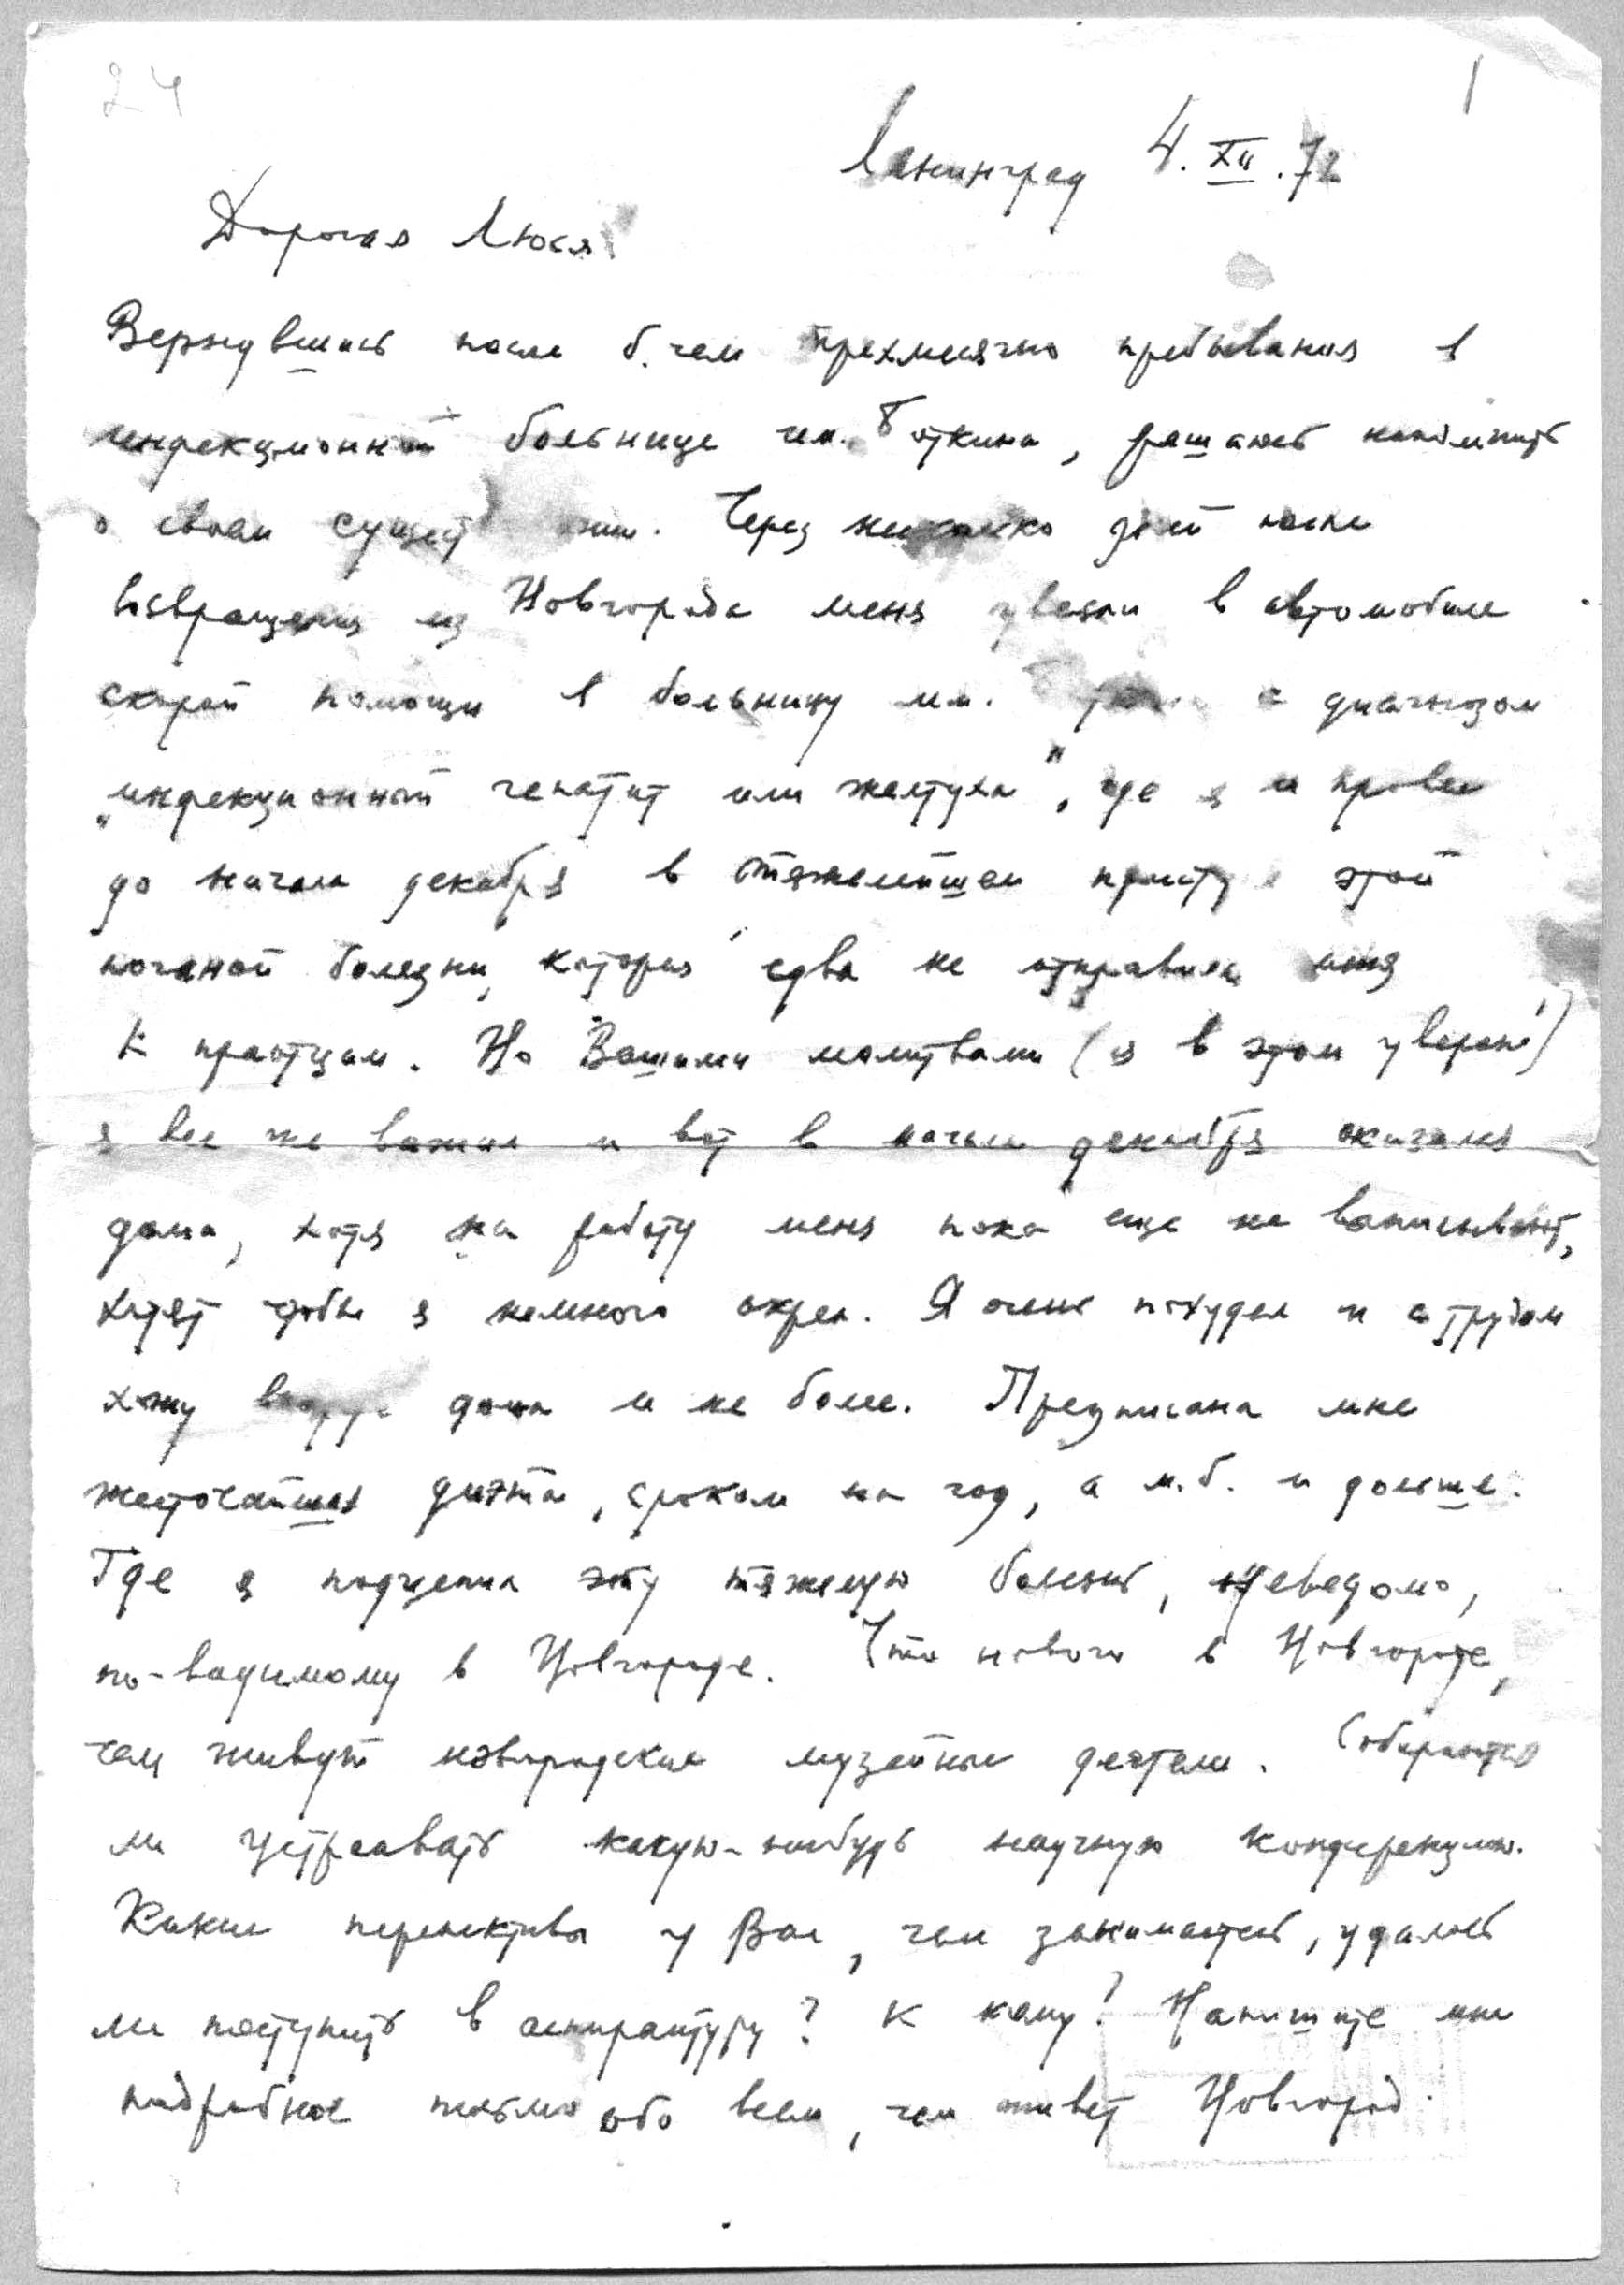 24
1
Ленинград 4.XII.72
Дорогая Люся
Вернувшись после б. чем трехмесячно пребывания в
инфекционной больнице им. Боткина, решаюсь напомнить
о своем сущест нии. Через несколько дней после
возвращения из Новгорода меня увезли в автомобиле
скорой помощи в больницу им. с диагнозом
„инфекционный гепатит или желтуха", где я и провел
до начала декабря в тяжелейшем приступе этой
поганой болезни, которая едва не отправила меня
к праотцам. Но Вашими молитвами (я в этом уверен!)
я все же выжил и вот в начале декабря оказался
дома, хотя на работу меня пока еще не выписывают,
хотят чтобы я немного окреп. Я очень похудел и с трудом
хожу вокруг дома и не более. Предписана мне
жесточайшая диэта, сроком на год, а м.б. и дольше.
Где я подцепил эту тяжелую болезнь, неведомо,
по-видимому в Новгороде. Что нового в Новгороде,
чем живут новгородские музейные деятели. Собираются
ли устраивать какую-нибудь научную конференцию.
Какие перспективы у Вас, чем занимаетесь, удалось
ли поступить в аспирантуру? К кому? Напишите мне
подробное письмо обо всем, чем живет Новгород.